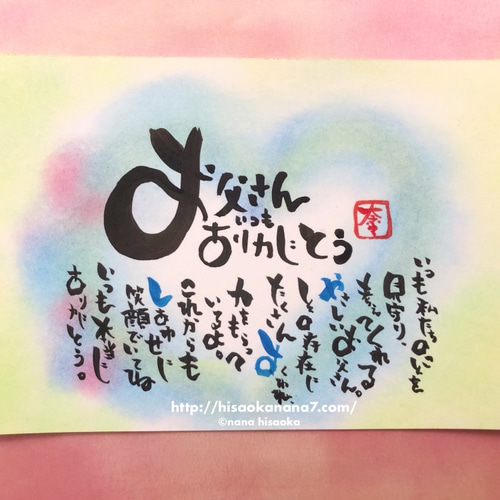 お父さん
いつも
ありがとう
いつも私たちのことを
見守り、
てくれる
やさしいお父さん。
その存在に
たくさん
力をもらって
いるよ。
これからも
しあわせに
笑顔でいてね
いつも本当に
ありがとう。
http://hisaokanana7.com/
©nana hisaoka